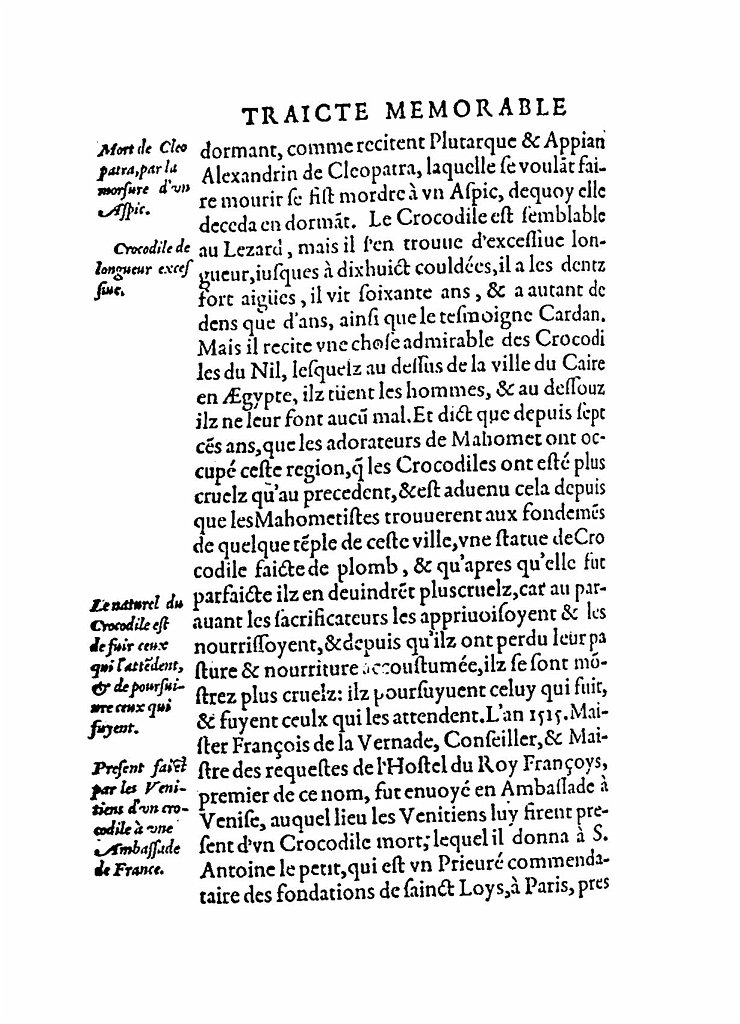 TRAICTE MEMORABLE
Mort de Cleo
patra, par la
morsure d'vn
Aſpic.
Crocodile de
longueur exceſ
ſiue.
Le naturel du
Crocodile eſt
de fuir ceux
qui l'attēdent,
& de pourſui-
ure ceux qui
fuyent.
Preſent faict
par les Veni-
tiens d'vn cro-
codile à vne
Ambaſſade
de France.
dormant, comme recitent Plutarque & Appian
Alexandrin de Cleopatra, laquelle ſe voulāt fai-
re mourir ſe fiſt mordre à vn Aſpic, dequoy elle
deceda en dormāt. Le Crocodile eſt ſemblable
au Lezard, mais il ſ'en trouue d'exceſſiue lon-
gueur, iuſques à dixhuict couldées, il a les dentz
fort aigües, il vit ſoixante ans, & a autant de
dens que d'ans, ainſi que le teſmoigne Cardan.
Mais il recite vne choſe admirable des Crocodi
les du Nil, leſquelz au deſſus de la ville du Caire
en Ægypte, ilz tüent les hommes, & au deſſouz
ilz ne leur font aucū mal. Et dict que depuis ſept
cēs ans, que les adorateurs de Mahomet ont oc-
cupé ceſte region, q̄ les Crocodiles ont eſté plus
cruelz qu'au precedent, & eſt aduenu cela depuis
que les Mahometiſtes trouuerent aux fondemēs
de quelque tēple de ceſte ville, vne ſtatue de Cro
codile faicte de plomb, & qu'apres qu'elle fut
parfaicte ilz en deuindrēt plus cruelz, car au par-
auant les ſacrificateurs les appriuoiſoyent & les
nourriſſoyent, & depuis qu'ilz ont perdu leur pa
ſture & nourriture accouſtumée, ilz ſe ſont mō-
ſtrez plus cruelz: ilz pourſuyuent celuy qui fuit,
& fuyent ceulx qui les attendent. L'an 1515. Mai-
ſter François de la Vernade, Conſeiller, & Mai-
ſtre des requeſtes de l'Hoſtel du Roy Françoys,
premier de ce nom, fut enuoyé en Ambaſſade à
Veniſe, auquel lieu les Venitiens luy firent pre-
ſent d'vn Crocodile mort; lequel il donna à S.
Antoine le petit, qui eſt vn Prieuré commenda-
taire des fondations de ſainct Loys, à Paris, pres